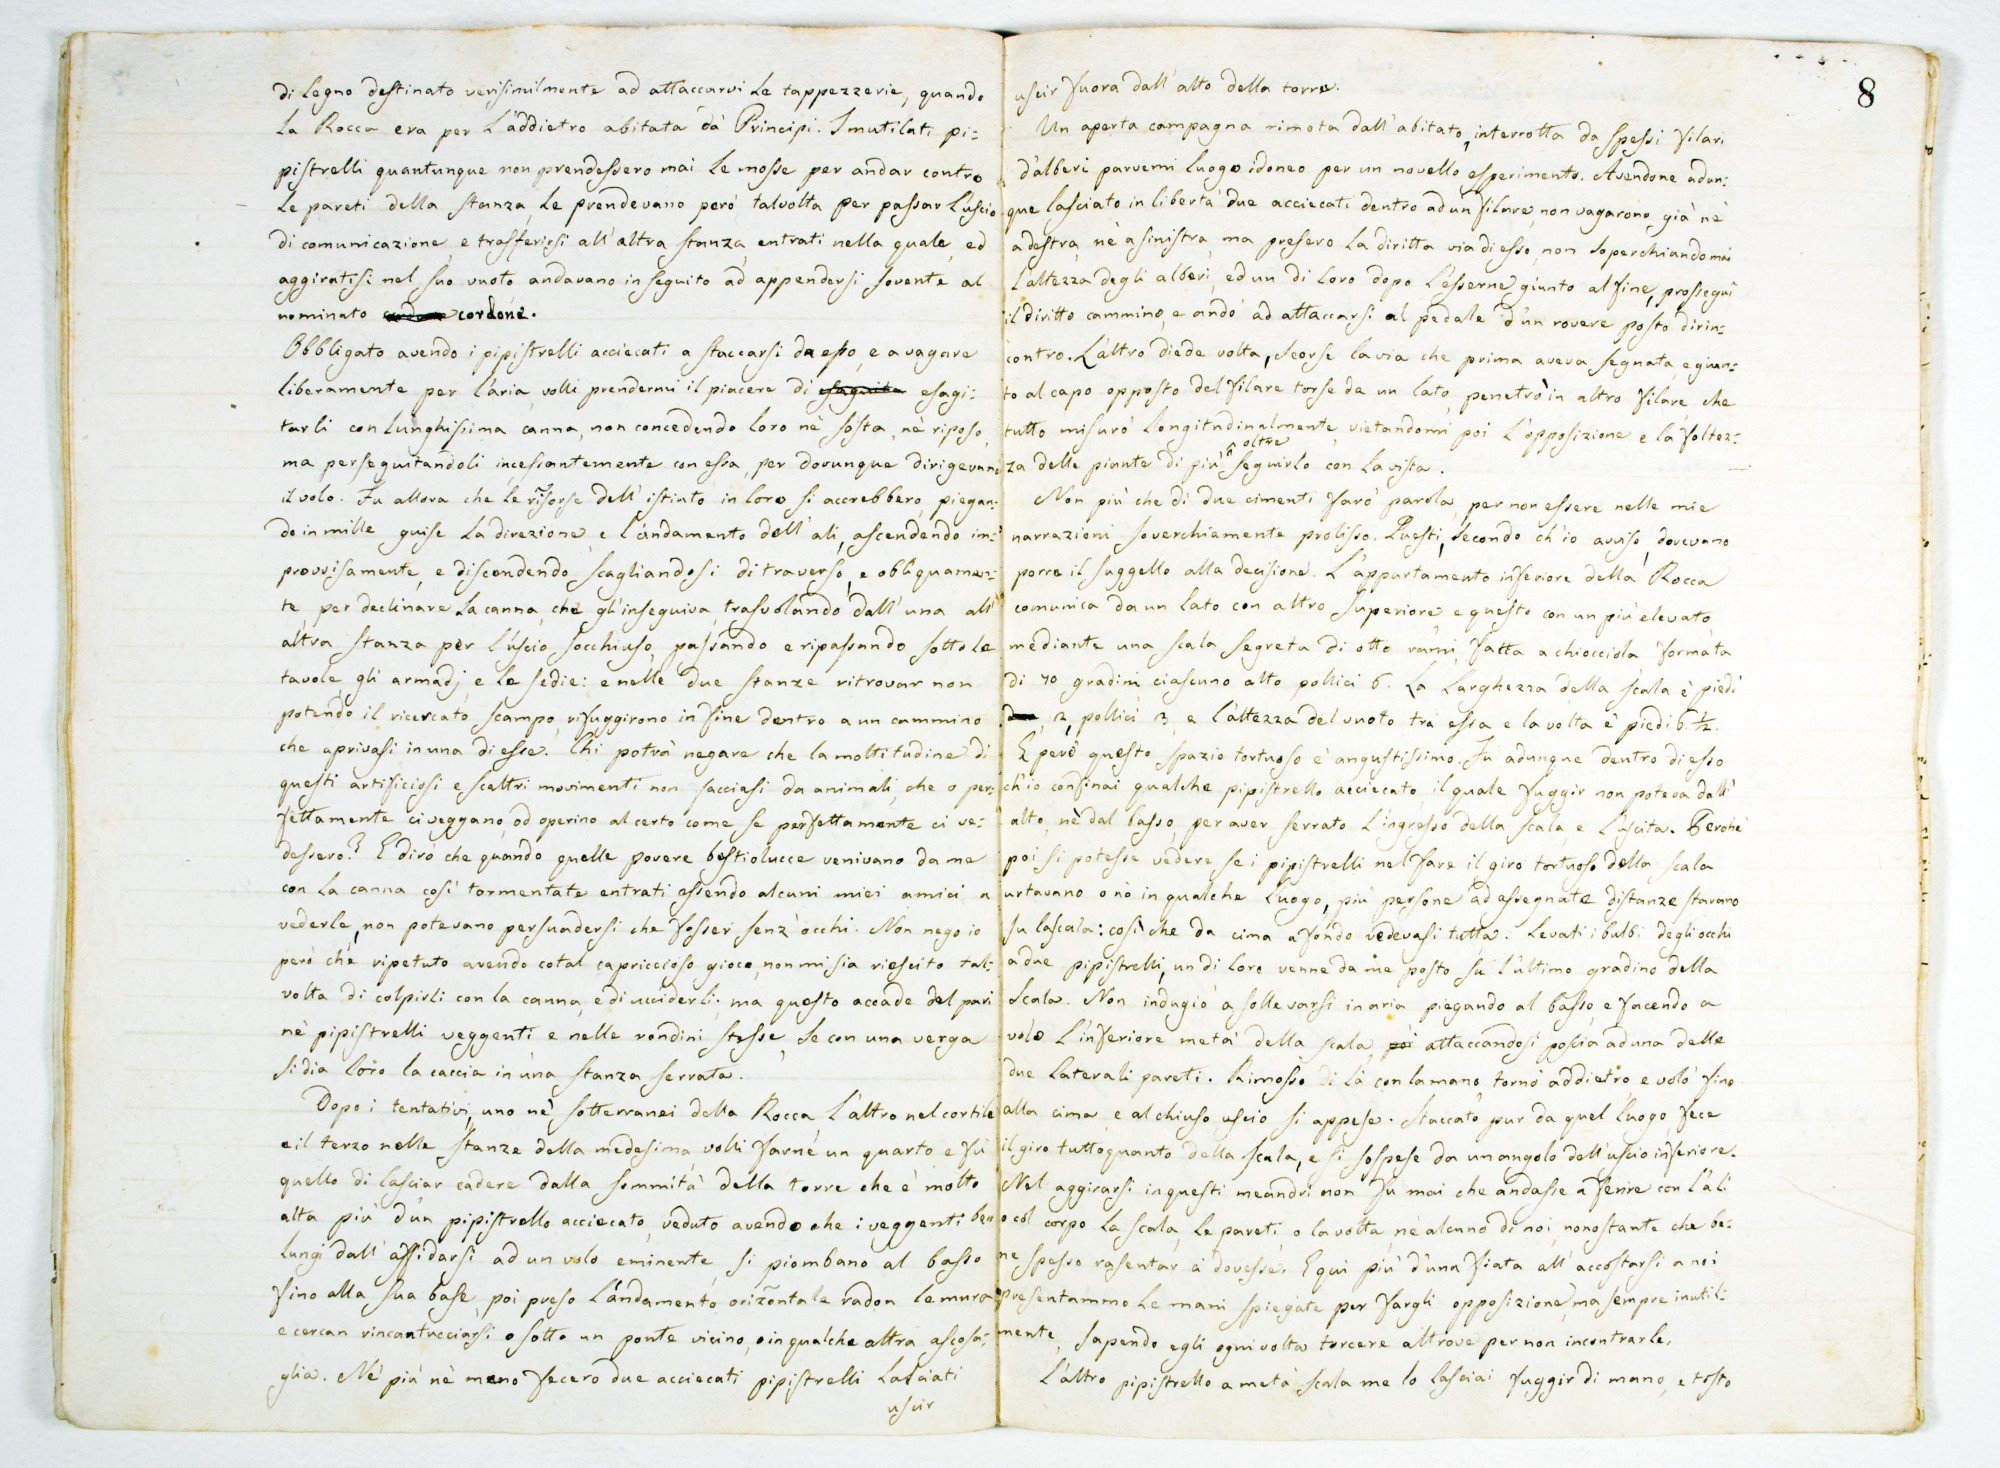 di legno destinato verisimilmente ad attaccarvi le tappezzerie, quando
la Rocca era per l'addietro abitata da' Principi. I mutilati pi=
pistrelli quantunque non prendessero mai le mosse per andar contro
le pareti della stanza, le prendevano però talvolta per passar l'uscio
di comunicazione, e trasferirsi all'altra stanza, entrati nella quale, ed
aggiratisi nel suo vuoto andavano in seguito ad appendersi sovente al
nominato cordone.
Obbligato avendo i pipistrelli acciecati a staccarsi da esso, e a vagare
liberamente per l'aria, volli prendermi il piacere di esagi=
tarli con lunghissima canna, non concedendo loro nè sosta, nè riposo,
ma perseguitandoli incessantemente con essa, per dovunque dirigevano
il volo. Fu allora che le risorse dell'istinto in loro si accrebbero, piegan=
do in mille guise la direzione, e l'andamento dell'ali, ascendendo im=
provvisamente, e discendendo, scagliandosi di traverso, e obliquamen=
te per declinare la canna, che gl'inseguiva, trasvolando dall'una all'
altra stanza per l'uscio socchiuso, passando e ripassando sotto le
tavole, gli armadj, e le sedie: e nelle due stanze ritrovar non
potendo il ricercato scampo, rifuggirono in fine dentro a un cammino
che aprivasi in una di esse. Chi potrà negare che la moltitudine di
questi artificiosi e scaltri movimenti non facciasi da animali, che o per=
fettamente ci veggano, od operino al certo come se perfettamente ci ve=
dessero? E dirò che quando quelle povere bestiolucce venivano da me
con la canna così tormentate entrati essendo alcuni miei amici a
vederle, non potevano persuadersi che fosser senz'occhi. Non nego io
però che ripetuto avendo cotal capriccioso gioco, non mi sia riescito tal=
volta di colpirli con la canna, e di ucciderli; ma questo accade del pari
nè pipistrelli veggenti e nelle rondini stesse, se con una verga
si dia loro la caccia in una stanza serrata.
Dopo i tentativi, uno nè sotterranei della Rocca, l'altro nel cortile
e il terzo nelle stanze della medesima volli farne un quarto e fù
quello di lasciar cadere dalla sommità della torre che è molto
alta più d'un pipistrello acciecato, veduto avendo che i veggenti ben
lungi dall'affidarsi ad un volo eminente, si piombano al basso
fino alla sua base, poi preso l'andamento orizontale radon le mura
e cercan rincantucciarsi o sotto un ponte vicino, o in qualche altra ascosa=
glia. Nè più nè meno fecero due acciecati pipistrelli lasciati
uscir
8
uscir fuora dall'alto della torre.
Un aperta campagna rimota dall'abitato, interrotta da spessi filari
d'alberi parvemi luogo idoneo per un novello esperimento. Avendone adun=
que lasciato in libertà due acciecati dentro ad un filare, non vagarono, già nè
a destra, nè a sinistra, ma presero la diritta via di esso, non soperchiando mai
l'altezza degli alberi, ed un di loro dopo l'esserne giunto al fine, prosseguì
il diritto cammino, e andò ad attaccarsi al pedale d'un rovere posto dirin=
contro. L'altro diede volta, scorse la via che prima aveva segnata e giun=
to al capo opposto del filare torse da un lato, penetrò in altro filare che
tutto misurò longitudinalmente, vietandomi poi l'opposizione e la foltez=
za delle piante di più oltre seguirlo con la vista.
Non più che di due cimenti farò parola, per non essere nelle mie
narrazioni soverchiamente prolisso. Questi, secondo ch'io avviso, dovevano
porre il suggello alla decisione. L'appartamento inferiore della Rocca
comunica da un lato con altro superiore e questo con un più elevato
mediante una scala segreta di otto rami, fatta a chiocciola, formata
di 70 gradini ciascuno alto pollici 6. La larghezza della scala è piedi
2, pollici 3, e l'altezza del vuoto tra essa e la volta è piedi 6. ½.
E però questo spazio tortuoso è angustissimo. Fu adunque dentro di esso
ch'io confinai qualche pipistrello acciecato, il quale fuggir non poteva dall'
alto, nè dal basso, per aver serrato l'ingresso della scala, e l'uscita. Perchè
poi si potesse vedere se i pipistrelli nel fare il giro tortuoso della scala
urtavano o nò in qualche luogo, più persone ad assegnate distanze stavano
su la scala: così che da cima a fondo vedevasi tutta. Levati i bulbi degli occhi
a due pipistrelli, un di loro venne da me posto su l'ultimo gradino della
scala. Non indugiò a sollevarsi in aria piegando al basso e facendo a
volo l'inferiore metà della scala, attaccandosi poscia ad una delle
due laterali pareti. Rimosso di là con la mano tornò addietro e volò fino
alla cima, e al chiuso uscio si appese. Staccato pur da quel luogo fece
il giro tuttoquanto della scala, e si sospese da un angolo dell'uscio inferiore.
Nel aggirarsi in questi meandri non fù mai che andasse a ferire con l'ali
o col corpo la scala, le pareti o la volta, nè alcuno di noi, nonostante che be=
ne spesso rasentar ci dovesse. E qui più d'una fiata all'accostarsi a noi
presentammo le mani spiegate per fargli opposizione, ma sempre inutil=
mente, sapendo egli ogni volta torcere altrove per non incontrarle.
L'altro pipistrello a metà scala me lo lasciai fuggir di mano, e tosto